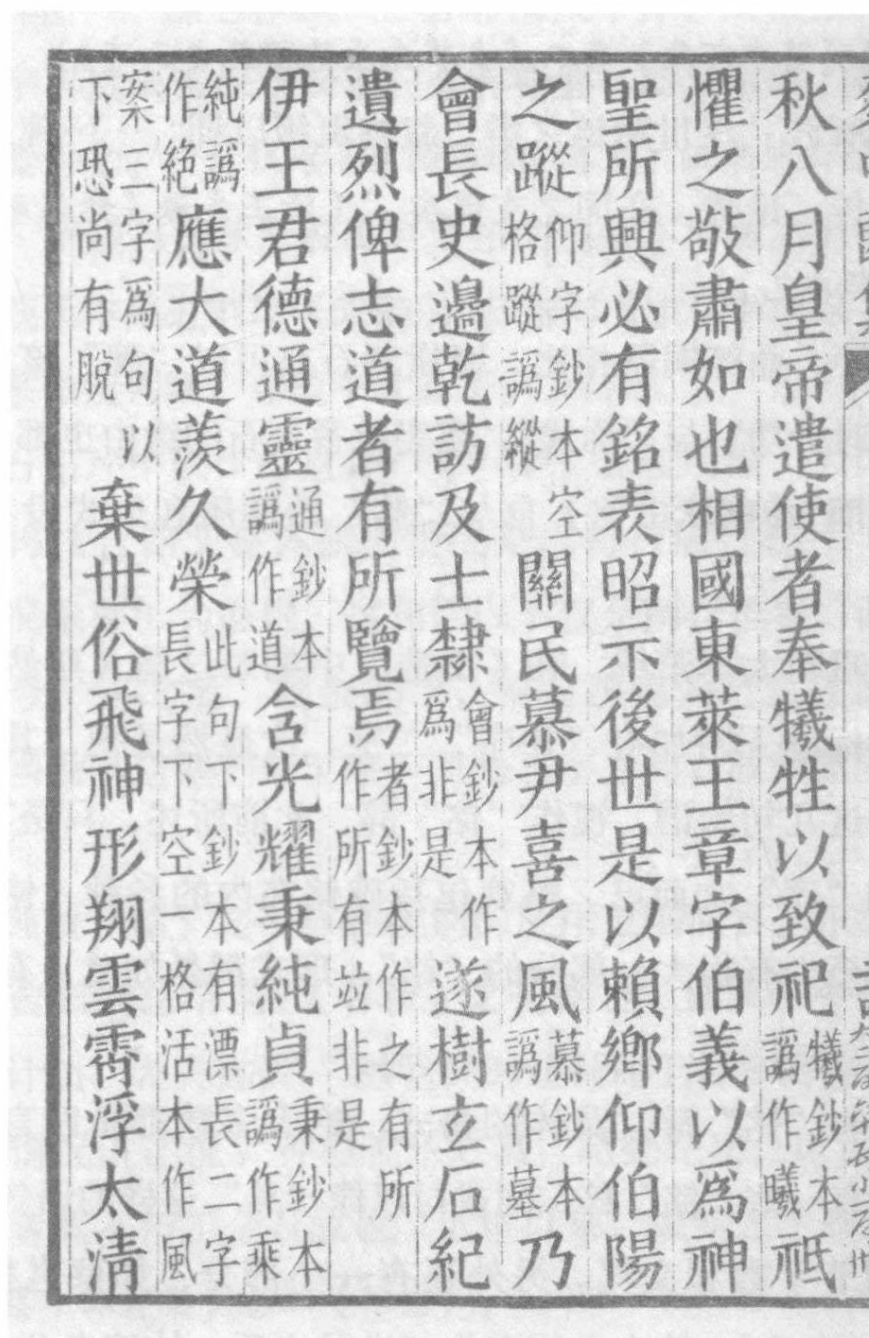 秋八月皇帝遣使者奉犧牲以致祀犧鈔本譌作曦祗
懼之敬肅如也相國東萊王章字伯義以爲神
聖所興必有銘表昭示後世是以賴鄉仰伯陽
之蹤仰字鈔本空格蹤譌縱關民慕尹喜之風慕鈔本譌作墓乃
會長史邉乾訪及士隸會鈔本作爲非是遂樹玄石紀
遺烈俾志道者有所覽焉者鈔本作之有所作所有並非是
伊王君德通靈通鈔本譌作道含光耀秉純貞秉鈔本譌作乘
純譌作絶應大道羨久榮此句下鈔本有漂長二字長字下空一格活本作風
案三字爲句以下恐尚有脫棄世俗飛神形翔雲霄浮太清